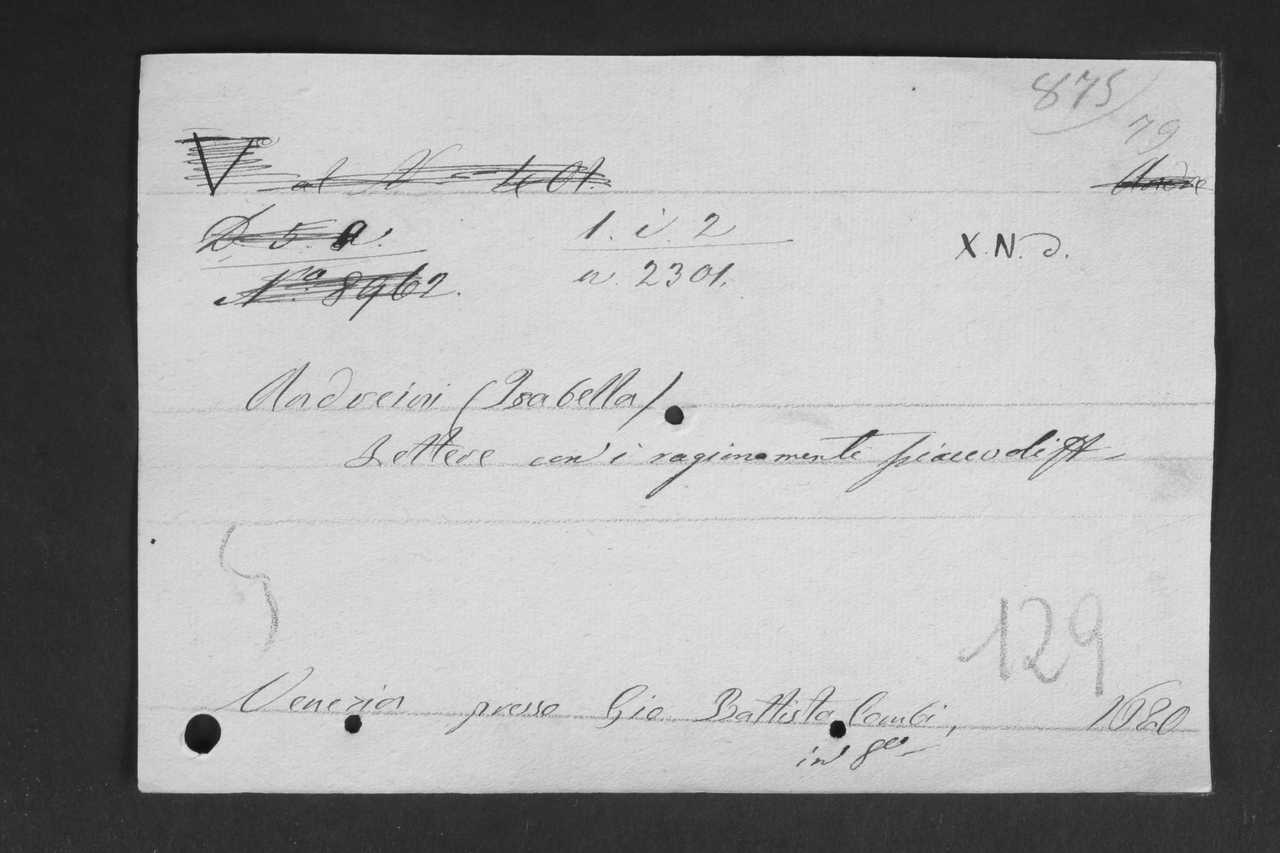 875
79
V al N 401.
Andre
D. 5. a. 1. i. 2 X.N.d.
N.ro 8962. n. 2301.
Andreini (Isabella)
Lettere con i ragionamenti piacevoli
129
Venezia presso Gio Battista Combi, 1620
in 8vo